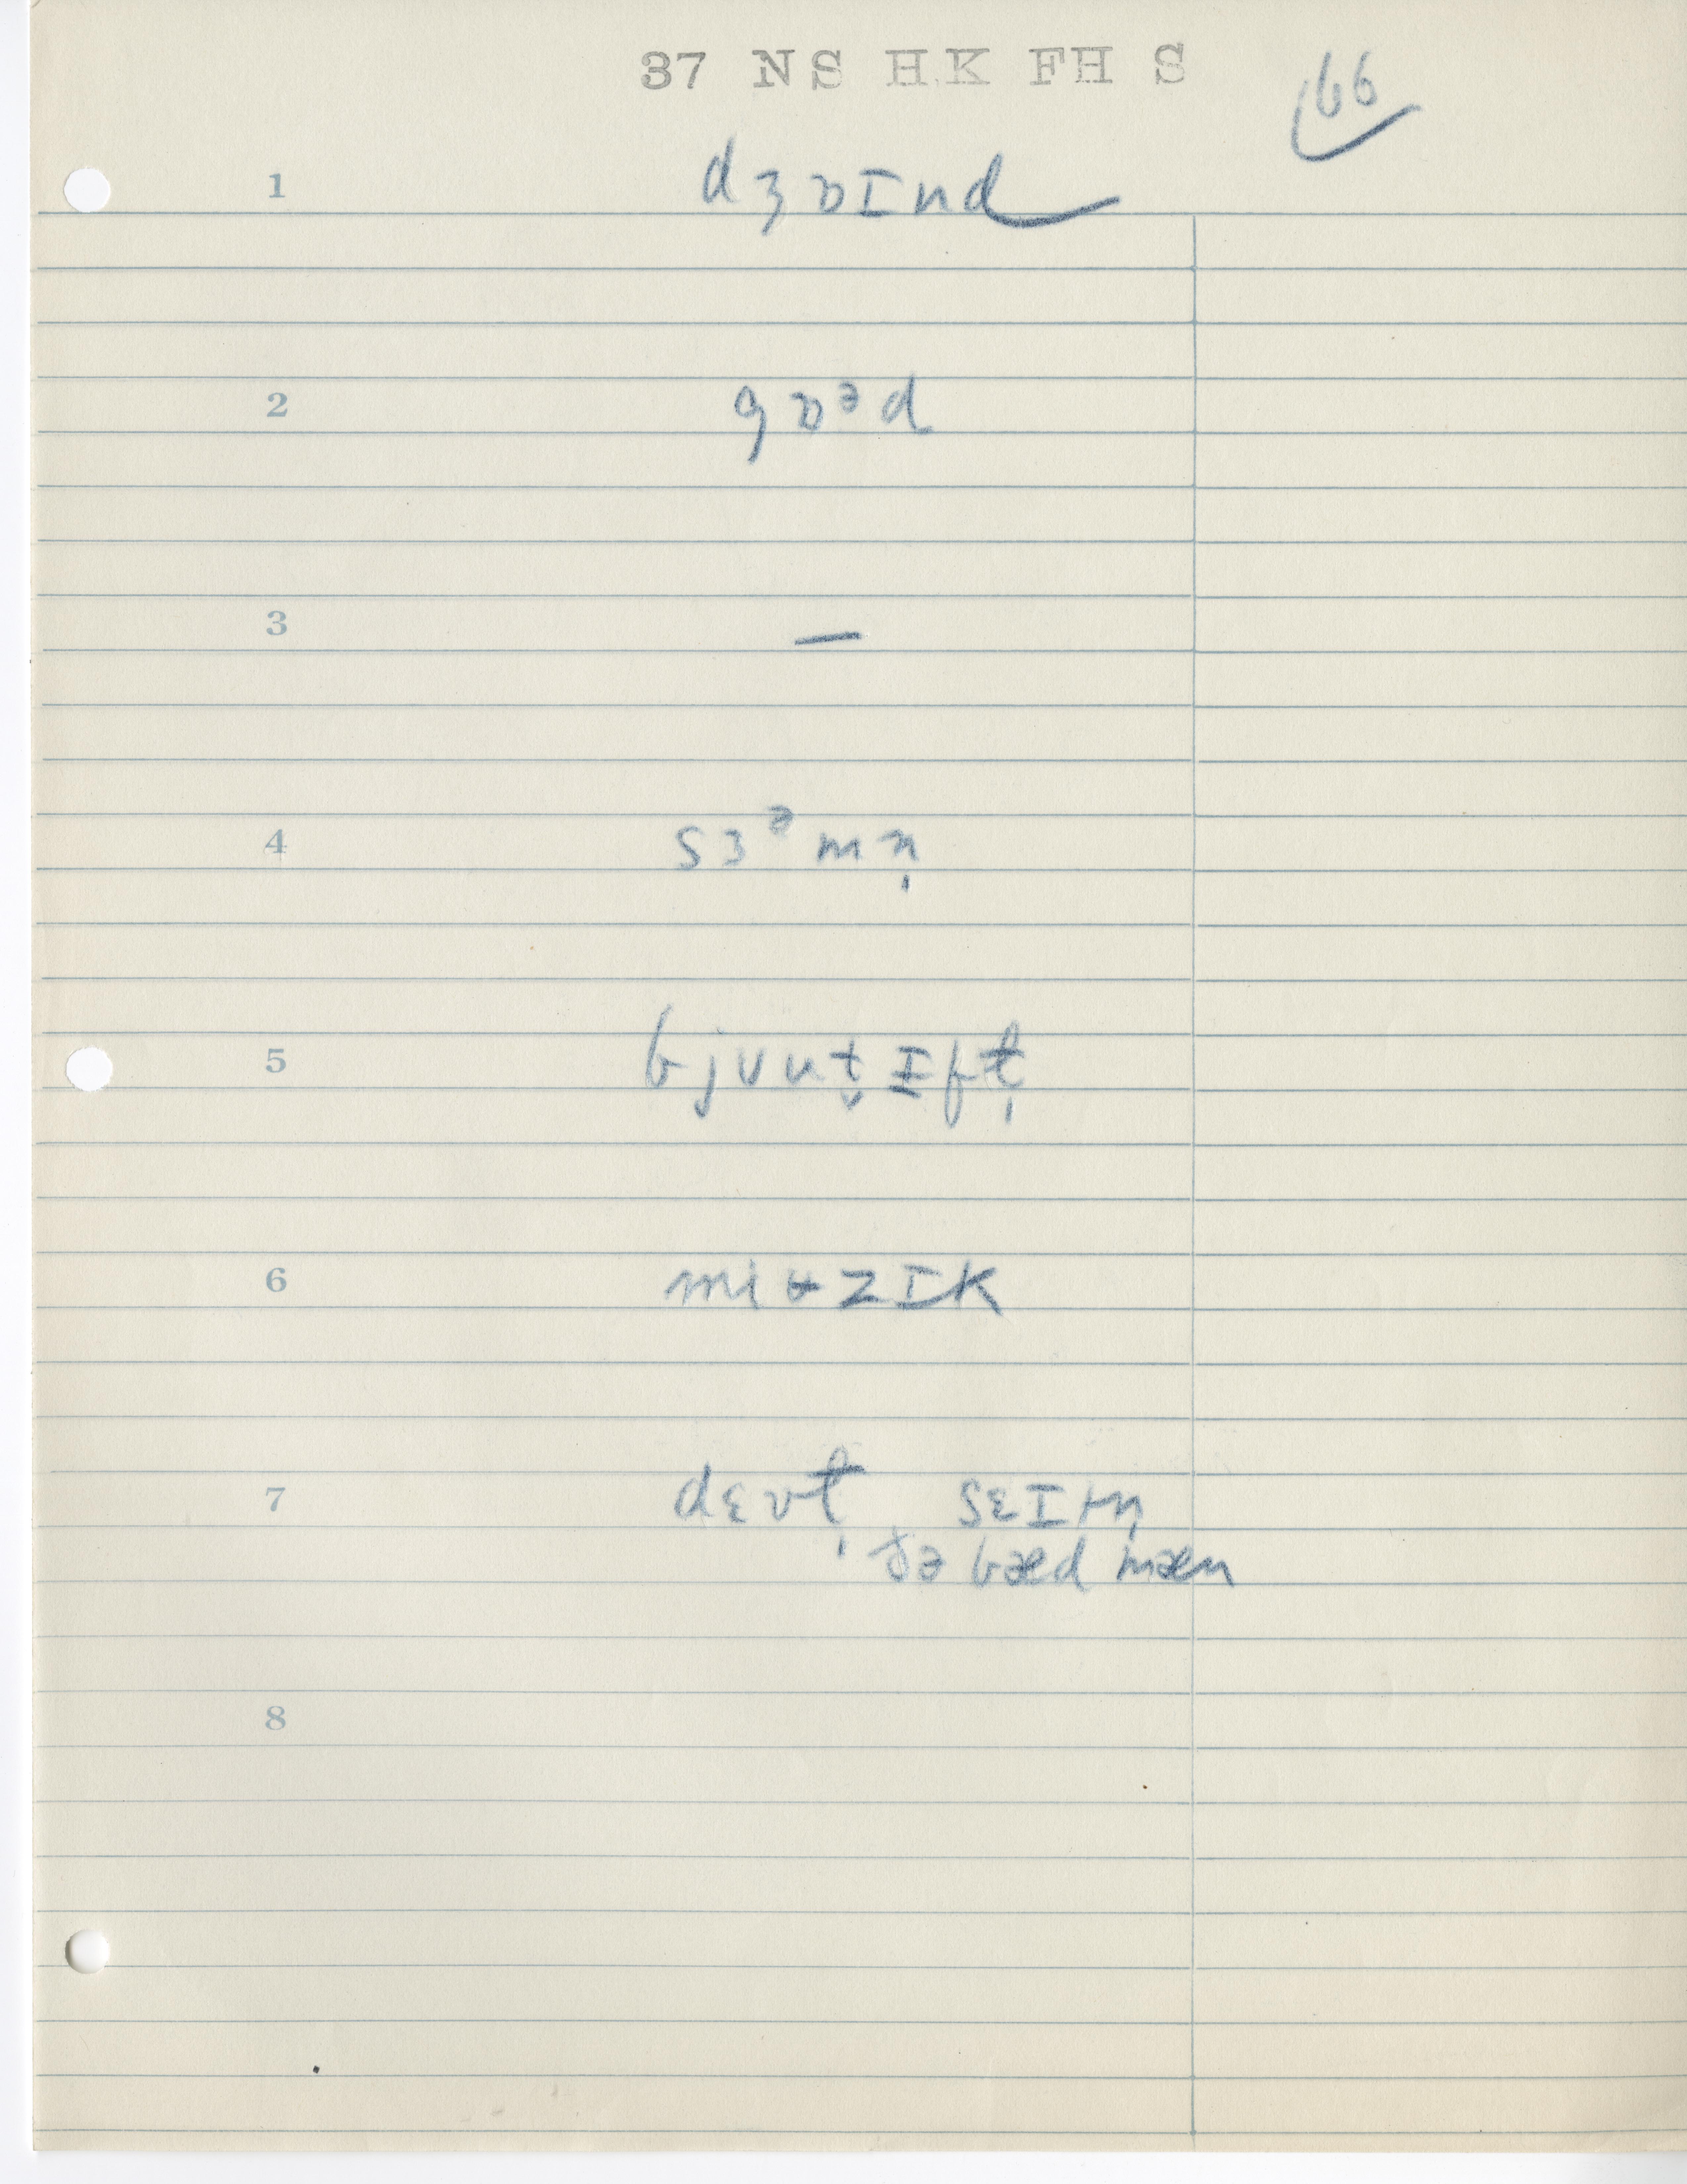 37 NS HK FH S
66
1 dʒɒɪnd
2 gɒᵊd
3 —
4 sɜᵊmn̩
5 bjʊut̬ɪfɫ̩
6 miʉzɪk
7 dɛvɫ̩ sɛɪtn̩
ðə bæd mæn
8